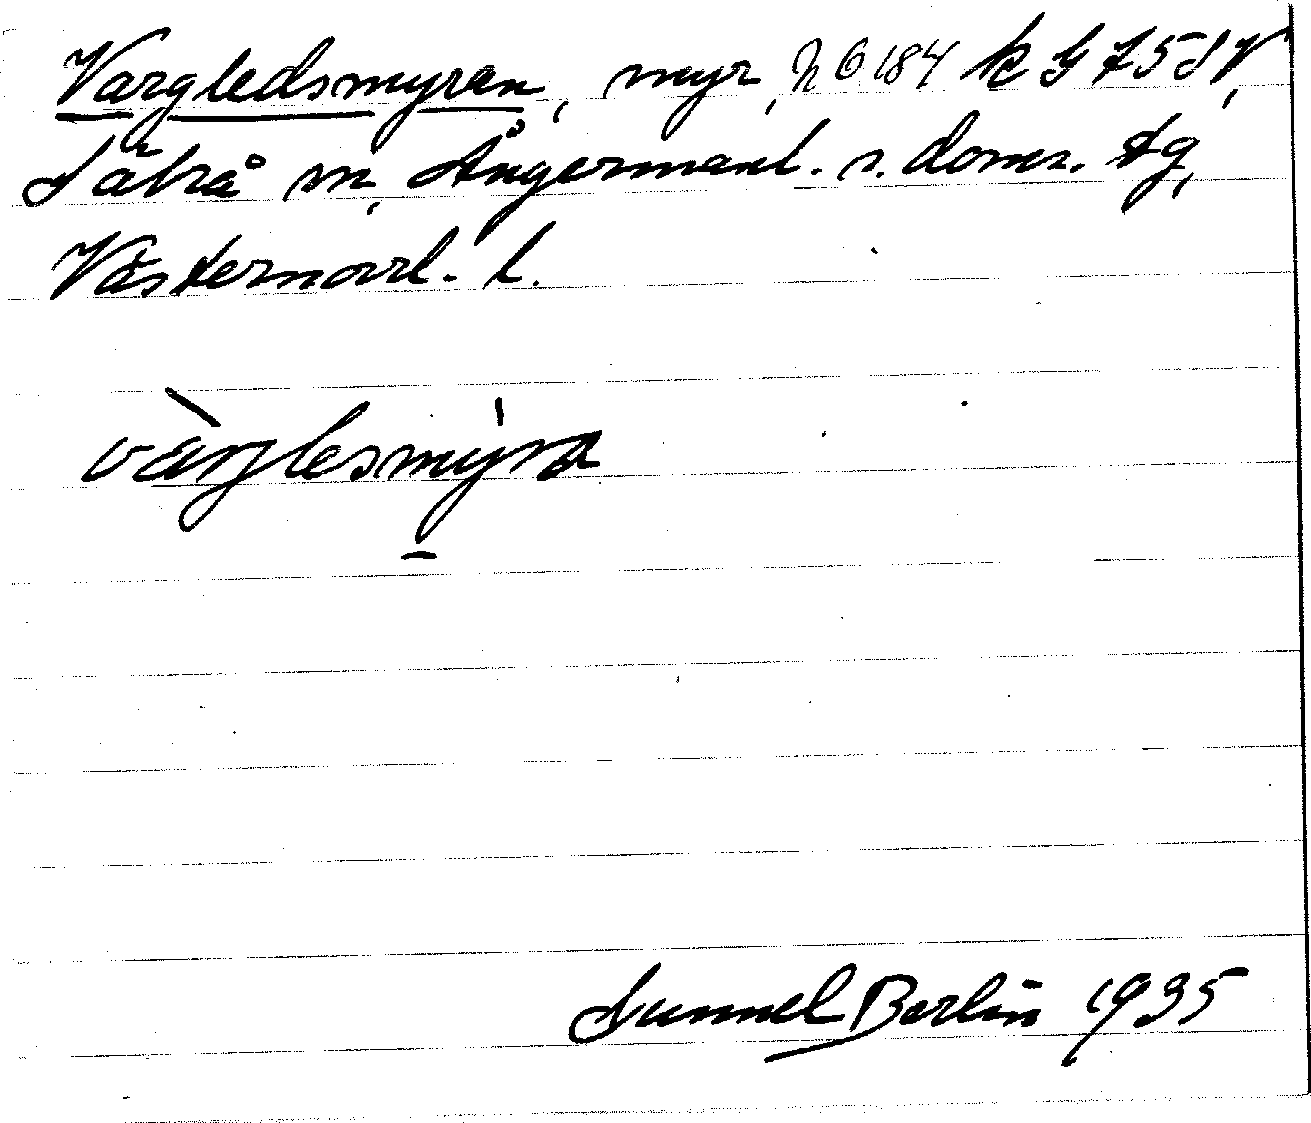 Vargledsmyren, myr, h 6 184 k G 75 SV,
Säbrå sn, Ångermanl. s. doms. tg,
Västernorrl. l.
várglesmýra
Sunnel Berlin 1935